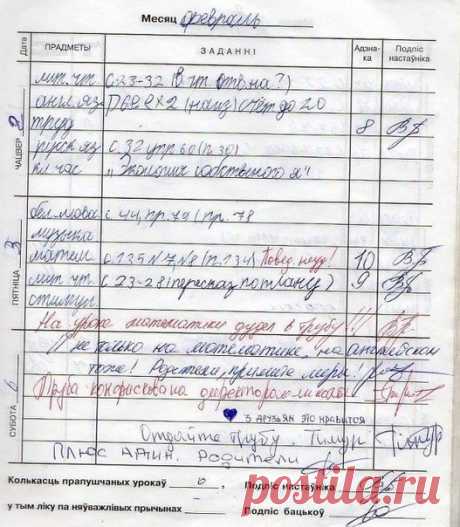 Месяц февраль
Дата
ПРАДМЕТЫ
ЗАДАННІ
Адзна-
ка
Подпіс
настаўніка
ЧАЦВЕР 2
лит. чт. с. 23-32 (В чт. отв. на ?)
англ. яз. счёт до 20
труд 8
русск. яз с. 32 упр. 60 (п. 30)
кл час „Экология собственного я"
ПЯТНІЦА 3
бел. мова с. 44, пр. 79 (пр. 78
музыка
матем с. 135 №7, №8 (п. 134) Повед. неуд! 10
лит. чт с 23-28 (пересказ по плану) 9
СУБОТА
На уроке математики дудел в трубу!!!
И не только на математике, на английском
тоже! Родители, примите меры!
Труба конфискована директором школы
3 друзьям это нравится
Отдайте трубу. Тимур Тимур
Плюс адзін родители
Колькасць прапушчаных урокаў 0, Подпіс настаўніка
у тым ліку па няўважлівых прычынах Подпіс бацькоў
posila.ru